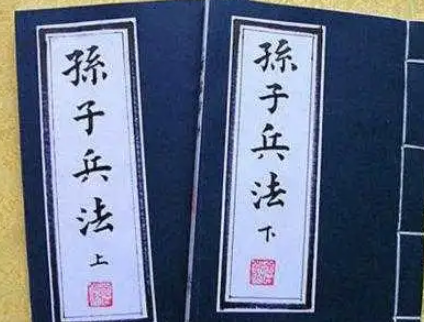 孫子兵法 上
孫子兵法 下